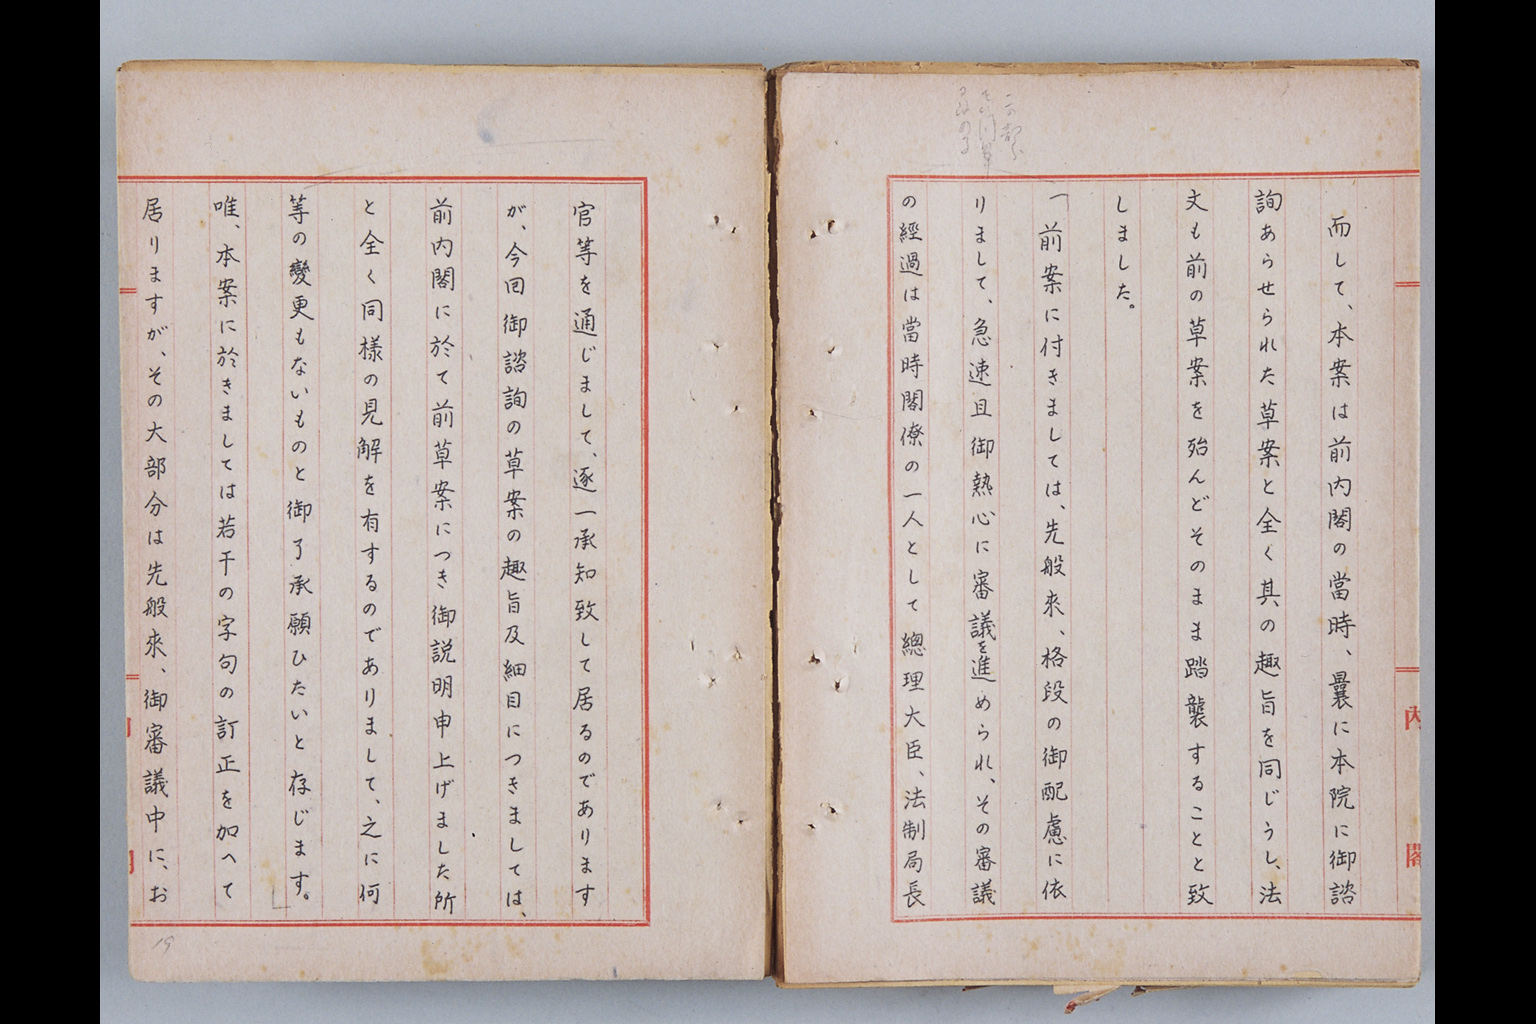 而して、本案は前内閣の當時、曩に本院に御諮
詢あらせられた草案と全く其の趣旨を同じうし、法
文も前の草案を殆んどそのまま踏襲することと致
しました。
「前案に付きましては、先般來、格段の御配慮に依
りまして、急速且御熱心に審議を進められ、その審議
の經過は當時閣僚の一人として總理大臣、法制局長
内
閣
官等を通じまして、逐一承知致して居るのであります
が、今回御諮詢の草案の趣旨及細目につきましては、
前内閣に於て前草案につき御説明申上げました所
と全く同様の見解を有するのでありまして、之に何
等の變更もないものと御了承願ひたいと存じます。」
唯、本案に於きましては若干の字句の訂正を加へて
居りますが、その大部分は先般來、御審議中に、お
19